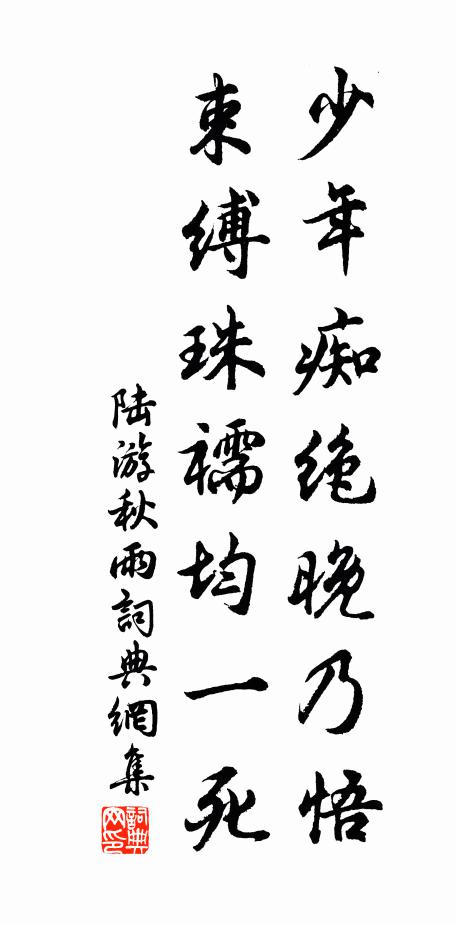 少年痴绝晚乃悟
束缚珠襦均一死
陆游秋雨詞典網集
詞典网印